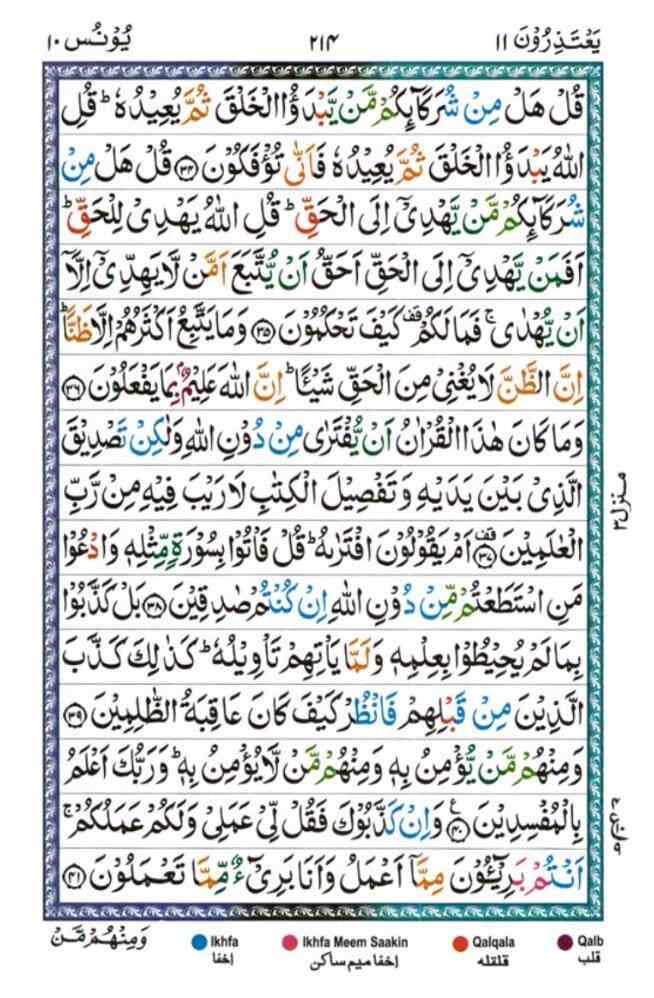 یَعْتَذِرُوْنَ ۱۱
۲۱۴
یُوْنُس ۱۰
قُلْ هَلْ مِنْ شُرَكَآىِٕكُمْ مَّنْ یَّبْدَؤُا الْخَلْقَ ثُمَّ یُعِیْدُهٗ ؕ قُلِ
اللّٰهُ یَبْدَؤُا الْخَلْقَ ثُمَّ یُعِیْدُهٗ فَاَنّٰى تُؤْفَكُوْنَ ﴿۳۴﴾ قُلْ هَلْ مِنْ
شُرَكَآىِٕكُمْ مَّنْ یَّهْدِیْۤ اِلَى الْحَقِّ ؕ قُلِ اللّٰهُ یَهْدِیْ لِلْحَقِّ ؕ
اَفَمَنْ یَّهْدِیْۤ اِلَى الْحَقِّ اَحَقُّ اَنْ یُّتَّبَعَ اَمَّنْ لَّا یَهِدِّیْۤ اِلَّاۤ
اَنْ یُّهْدٰى ۚ فَمَا لَكُمْ ۫ كَیْفَ تَحْكُمُوْنَ ﴿۳۵﴾ وَمَا یَتَّبِعُ اَكْثَرُهُمْ اِلَّا ظَنًّا ؕ
اِنَّ الظَّنَّ لَا یُغْنِیْ مِنَ الْحَقِّ شَیْـًٔا ؕ اِنَّ اللّٰهَ عَلِیْمٌۢ بِمَا یَفْعَلُوْنَ ﴿۳۶﴾
وَمَا كَانَ هٰذَا الْقُرْاٰنُ اَنْ یُّفْتَرٰى مِنْ دُوْنِ اللّٰهِ وَلٰكِنْ تَصْدِیْقَ
الَّذِیْ بَیْنَ یَدَیْهِ وَتَفْصِیْلَ الْكِتٰبِ لَا رَیْبَ فِیْهِ مِنْ رَّبِّ
الْعٰلَمِیْنَ ﴿۳۷﴾ اَمْ یَقُوْلُوْنَ افْتَرٰىهُ ؕ قُلْ فَاْتُوْا بِسُوْرَةٍ مِّثْلِهٖ وَادْعُوْا
مَنِ اسْتَطَعْتُمْ مِّنْ دُوْنِ اللّٰهِ اِنْ كُنْتُمْ صٰدِقِیْنَ ﴿۳۸﴾ بَلْ كَذَّبُوْا
بِمَا لَمْ یُحِیْطُوْا بِعِلْمِهٖ وَلَمَّا یَاْتِهِمْ تَاْوِیْلُهٗ ؕ كَذٰلِكَ كَذَّبَ
الَّذِیْنَ مِنْ قَبْلِهِمْ فَانْظُرْ كَیْفَ كَانَ عَاقِبَةُ الظّٰلِمِیْنَ ﴿۳۹﴾
وَمِنْهُمْ مَّنْ یُّؤْمِنُ بِهٖ وَمِنْهُمْ مَّنْ لَّا یُؤْمِنُ بِهٖ ؕ وَرَبُّكَ اَعْلَمُ
بِالْمُفْسِدِیْنَ ﴿۴۰﴾ وَاِنْ كَذَّبُوْكَ فَقُلْ لِّیْ عَمَلِیْ وَلَكُمْ عَمَلُكُمْ ۚ
اَنْتُمْ بَرِیْٓـُٔوْنَ مِمَّاۤ اَعْمَلُ وَاَنَا بَرِیْٓءٌ مِّمَّا تَعْمَلُوْنَ ﴿۴۱﴾
منزل ۳
وَمِنْهُمْ مَّنْ
Ikhfa
Ikhfa Meem Saakin
Qalqala
Qalb
اخفا
اخفا میم ساکن
قلقلہ
قلب